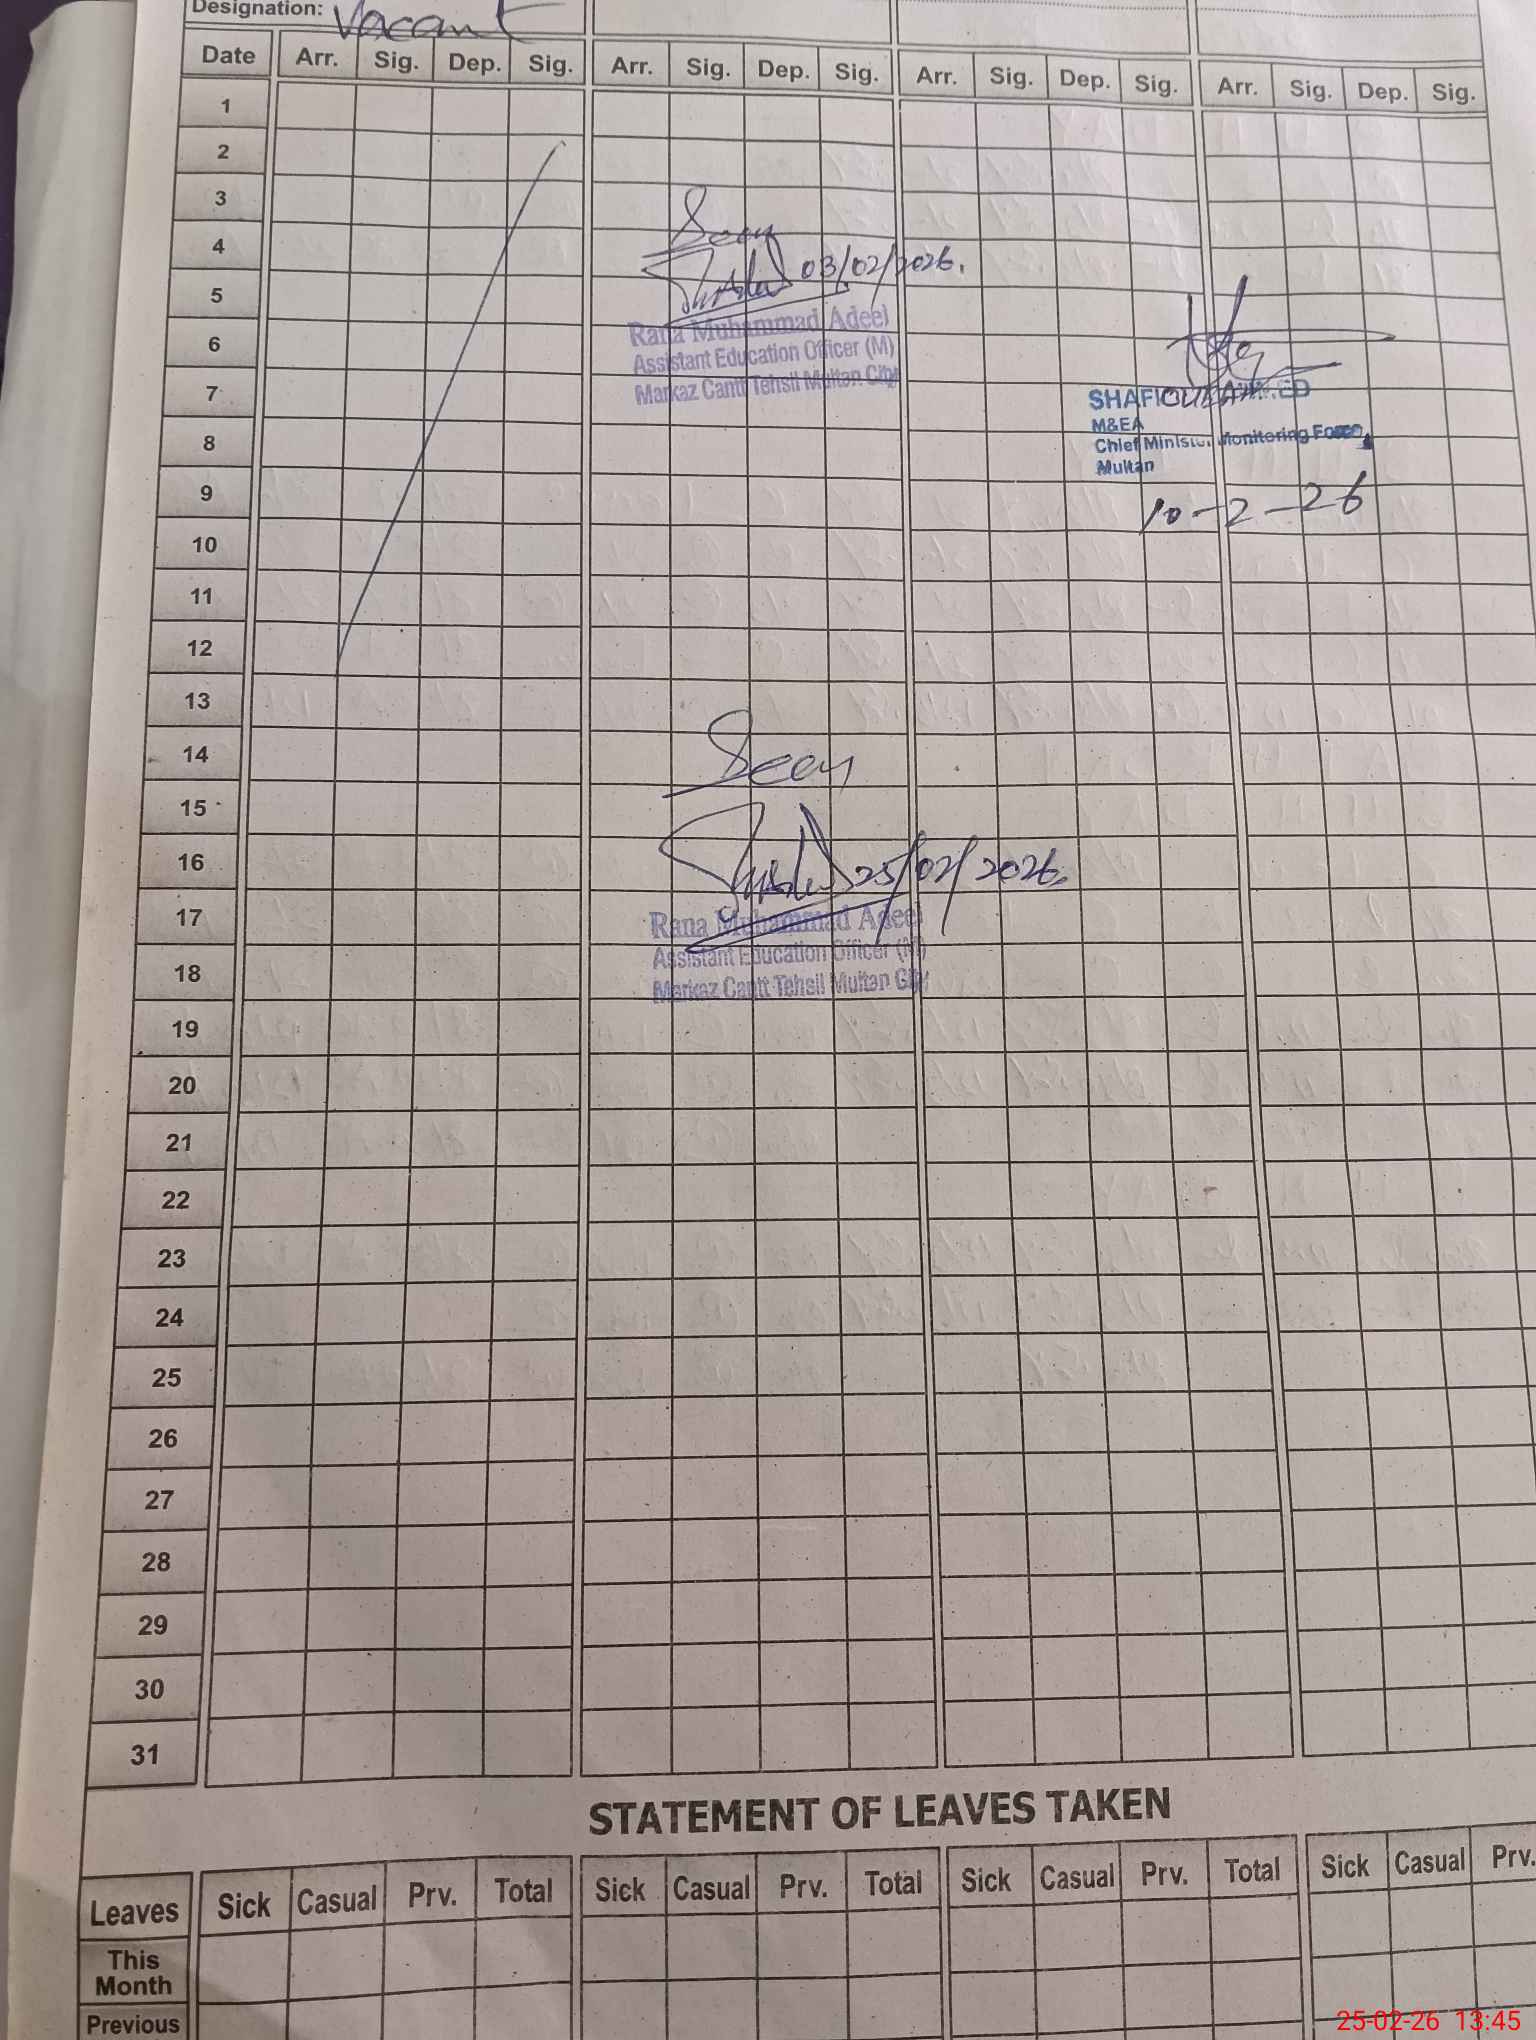 Designation: Vacant
Date Arr. Sig. Dep. Sig. Arr. Sig. Dep. Sig. Arr. Sig. Dep. Sig. Arr. Sig. Dep. Sig.
1
2
3
Seen
4
03/02/2026.
5
Rana Muhammad Adeel
6
Assistant Education Officer (M)
Markaz Cantt Tehsil Multan City
7
SHAFIQUE AHMED
M&EA
8
Chief Minister Monitoring Force,
Multan
9
10-2-26
10
11
12
13
14
Seen
15
16
25/02/2026.
17
Rana Muhammad Adeel
Assistant Education Officer (M)
18
Markaz Cantt Tehsil Multan City
19
20
21
22
23
24
25
26
27
28
29
30
31
STATEMENT OF LEAVES TAKEN
Leaves Sick Casual Prv. Total Sick Casual Prv. Total Sick Casual Prv. Total Sick Casual Prv.
This
Month
Previous
25-02-26 13:45